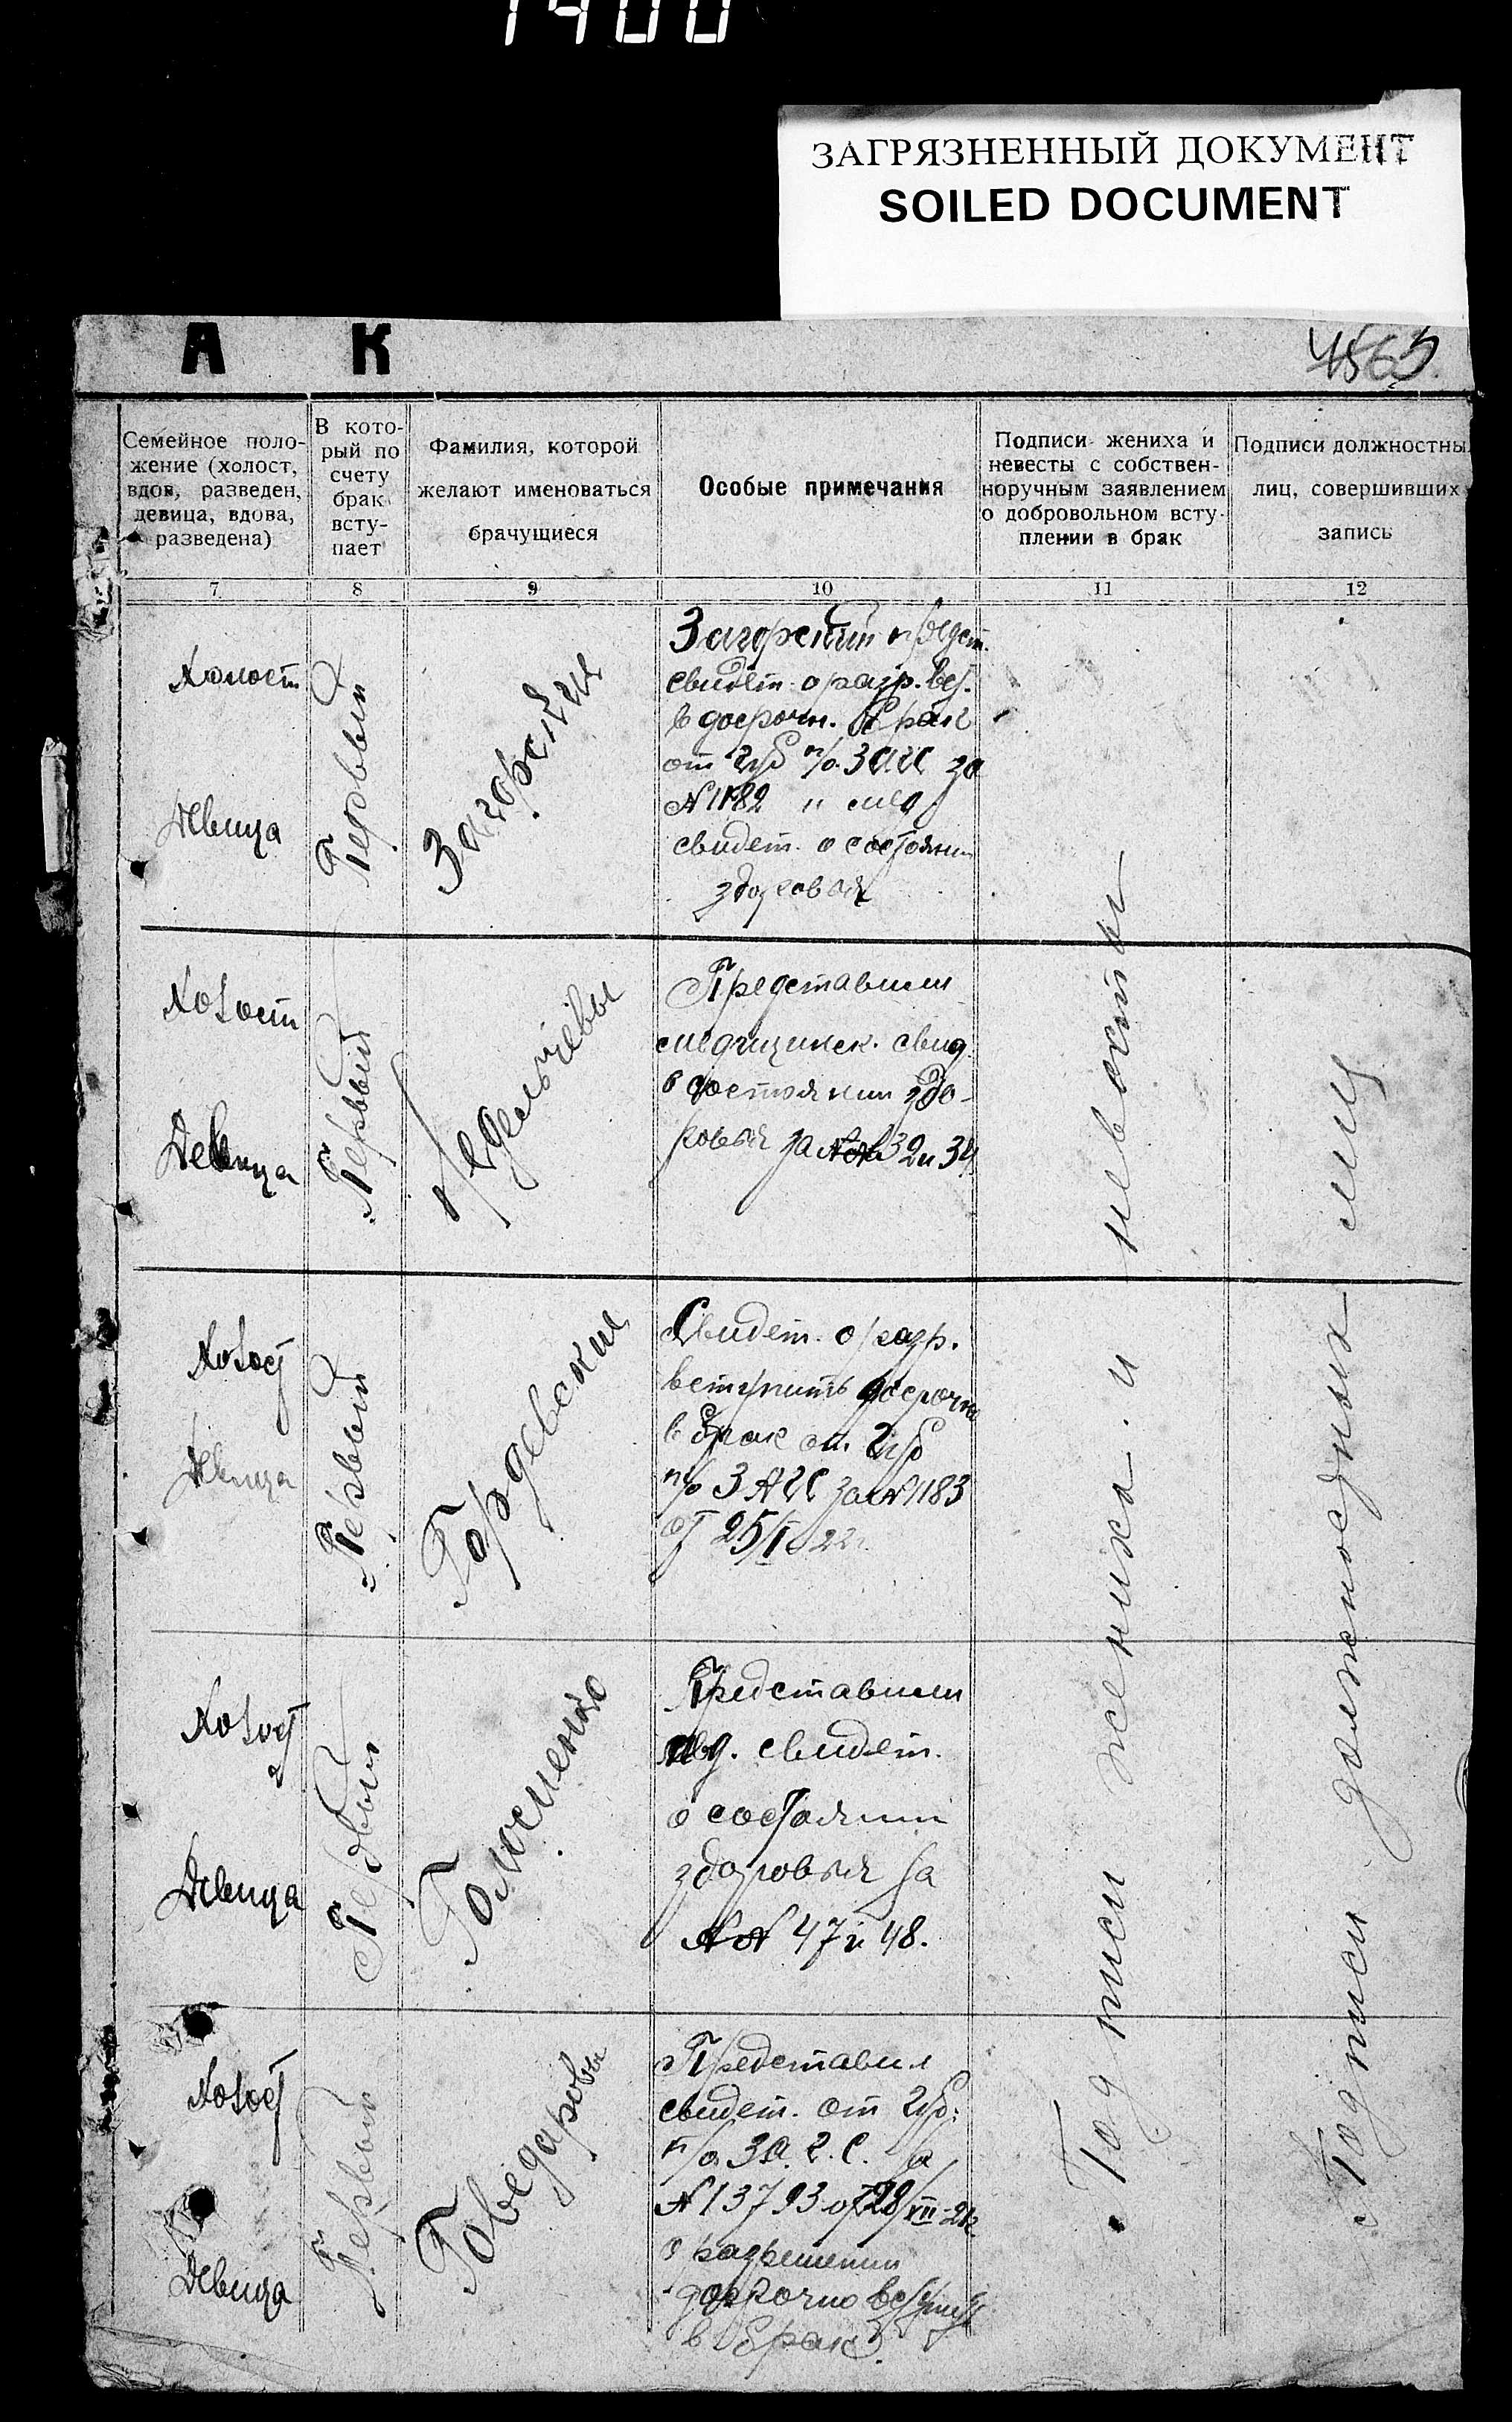 1400
ЗАГРЯЗНЕННЫЙ ДОКУМЕНТ
SOILED DOCUMENT
А К
4565.
Семейное поло-
жение (холост,
вдов, разведен,
девица, вдова,
разведена)
В кото-
рый по
счету
брак
всту-
пает
Фамилия, которой
желают именоваться
брачущиеся
Особые примечания
Подписи жениха и
невесты с собствен-
норучным заявлением
о добровольном всту-
плении в брак
Подписи должностны
лиц, совершивших
запись
7 8 9 10 11 12
Холост
Девица
Первый
Загорские
Загорский предст.
свидет. о разр. вст.
в досрочн. брак
от Губ п/о ЗАГС за
N 1182 и мед
свидет. о состоянии
здоровья
Холост
Девица
Первый
Представили
медицинск. свид.
о состоянии здо-
ровья за NN 32 и 34
Холост
Девица
Первый
Гордевские
Свидет. о разр.
вступить досрочно
в брак от Губ
п/о ЗАГС за N 1183
от 25/I 22г.
Холост
Девица
Первый
Представили
мед. свидет.
о состоянии
здоровья за
NN 47 и 48.
Холост
Девица
Первый
Говедаровы
Представил
свидет. от Губ.
п/о З.А.Г.С. за
N 13793 от 28/VII-21г.
о разрешении
досрочно вступить
в брак.
Подписи жениха и невесты
Подписи должностных лиц